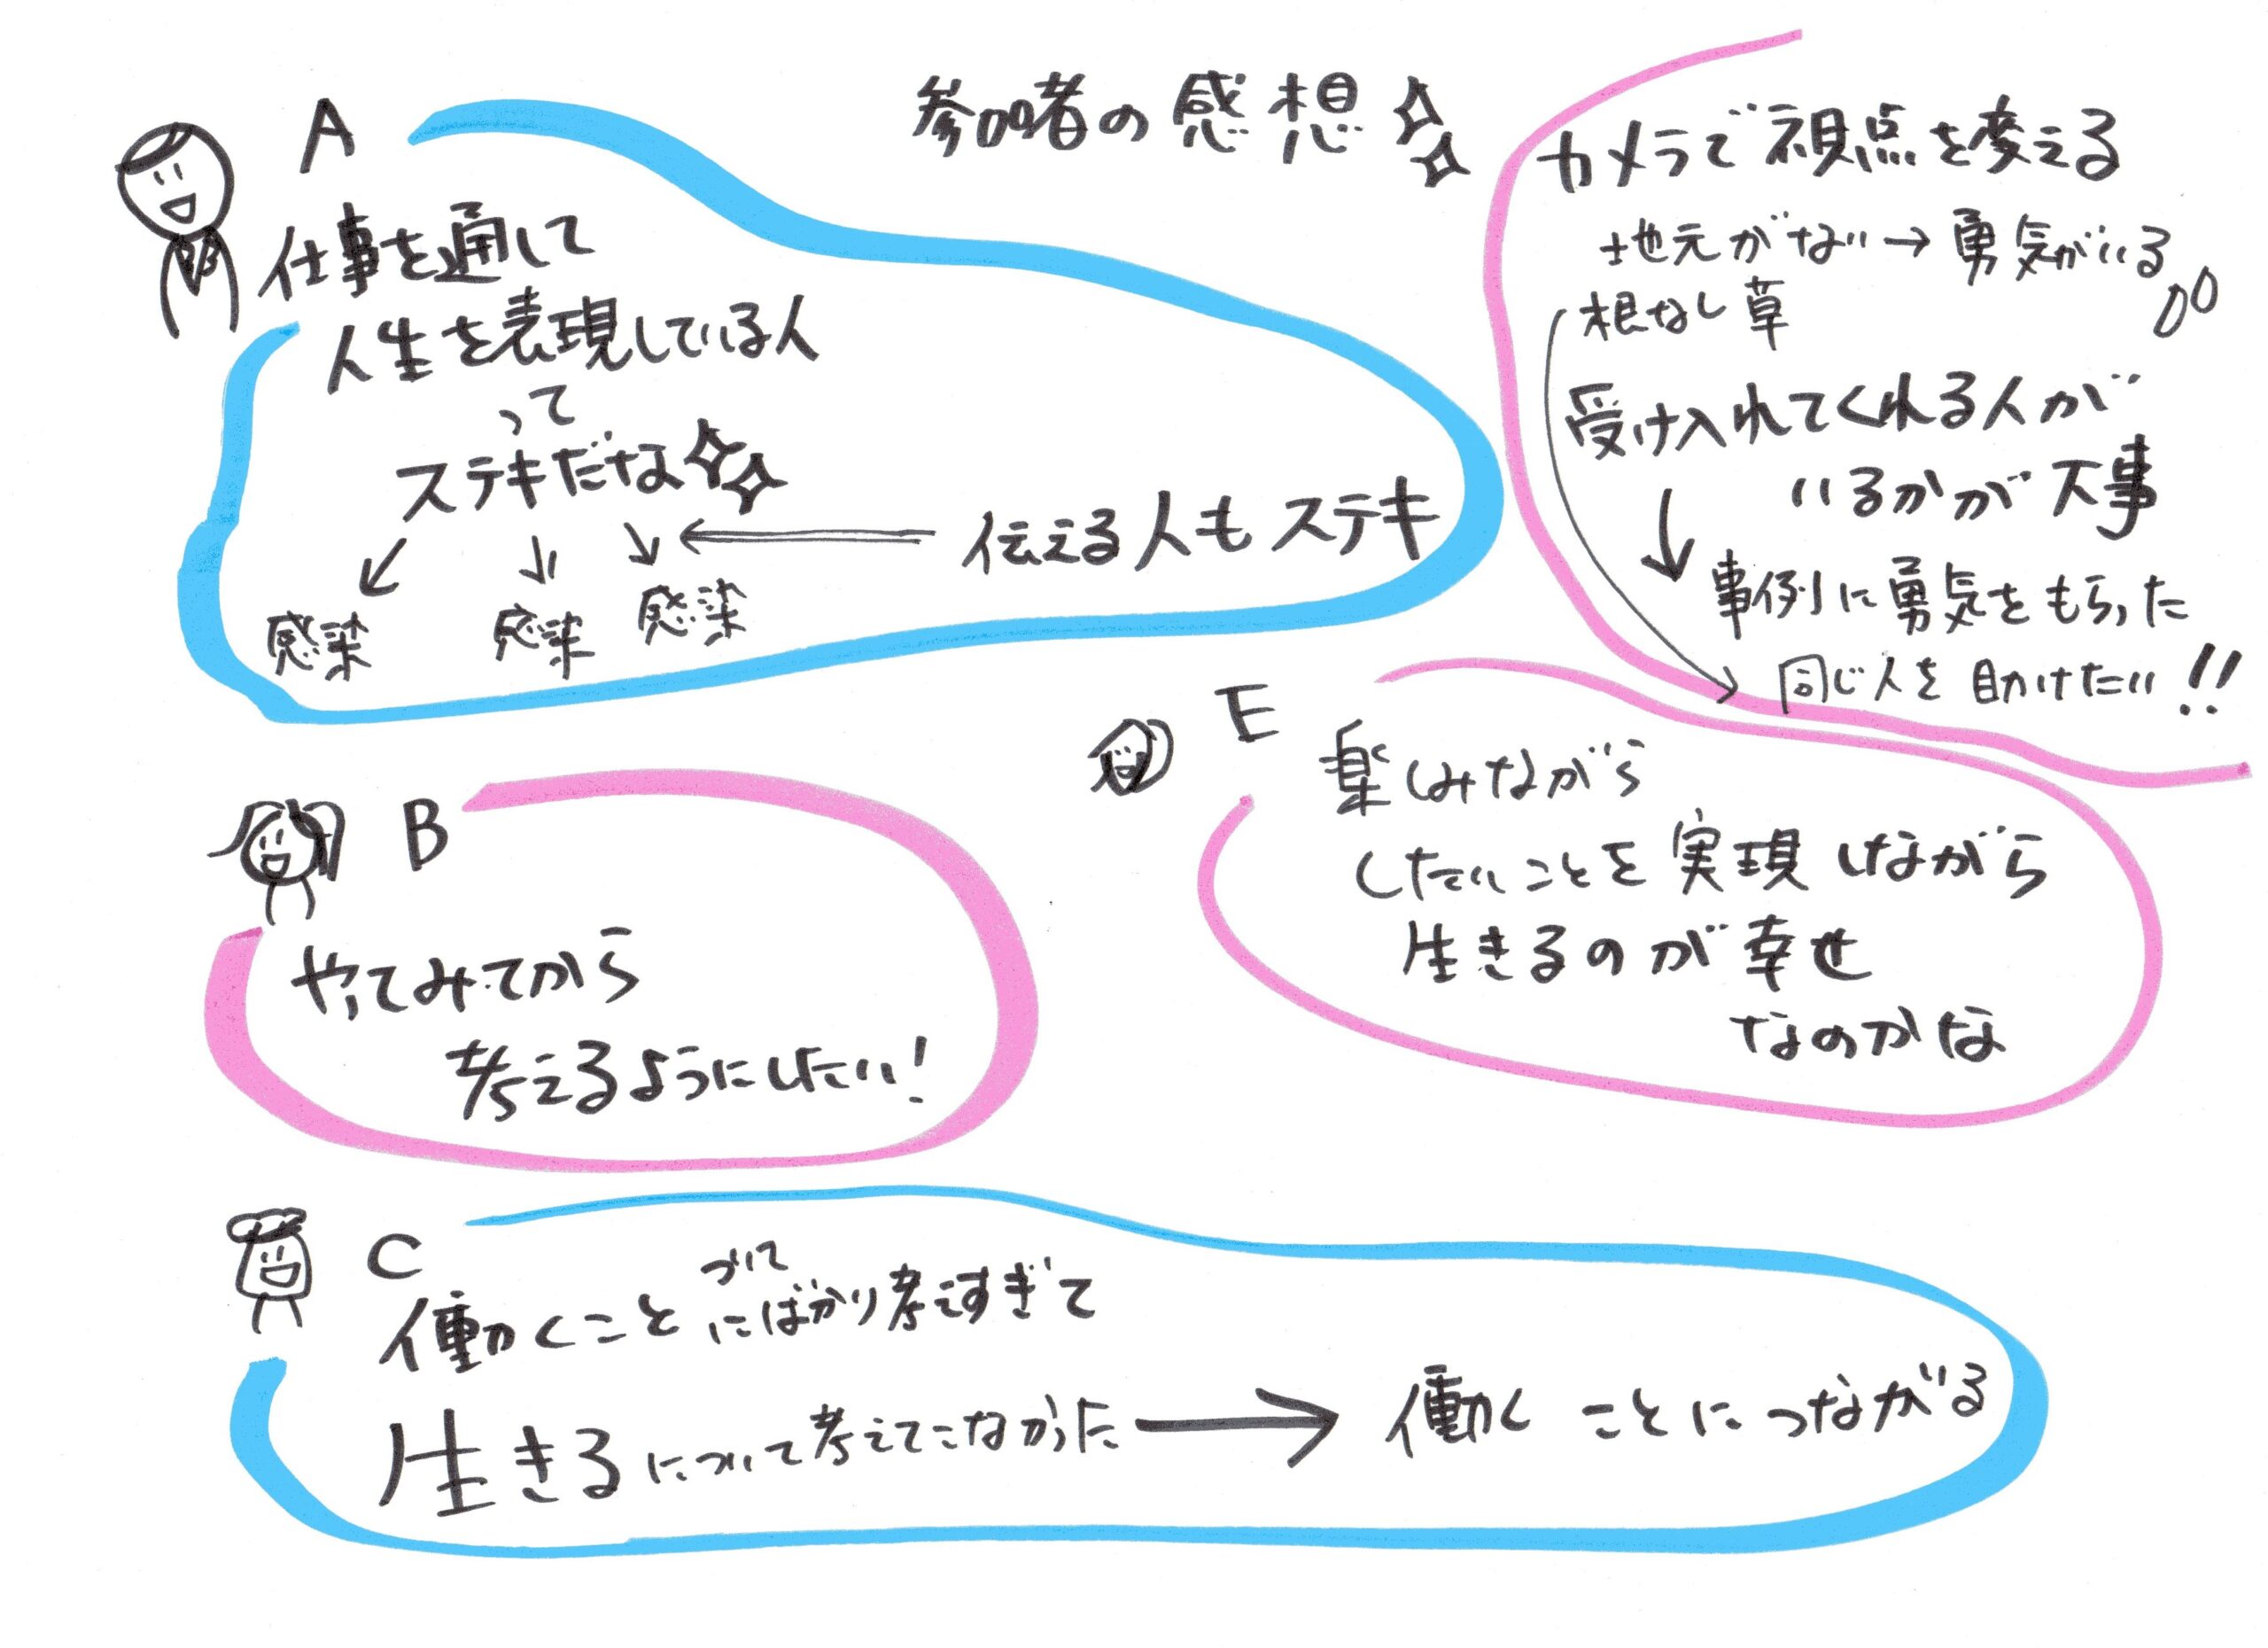 参加者の感想
A
仕事を通して
人生を表現している人
って
ステキだな
感染 感染 感染
伝える人もステキ
B
やってみてから
考えるようにしたい!
C
働くこと にばかり考えすぎて
づいて
生きるについて考えてこなかった → 働くことにつながる
カメラで視点を変える
地元がない → 勇気がいる
根なし草
受け入れてくれる人が
いるかが大事
事例に勇気をもらった
同じ人を助けたい!!
E
楽しみながら
したいことを実現しながら
生きるのが幸せ
なのかな